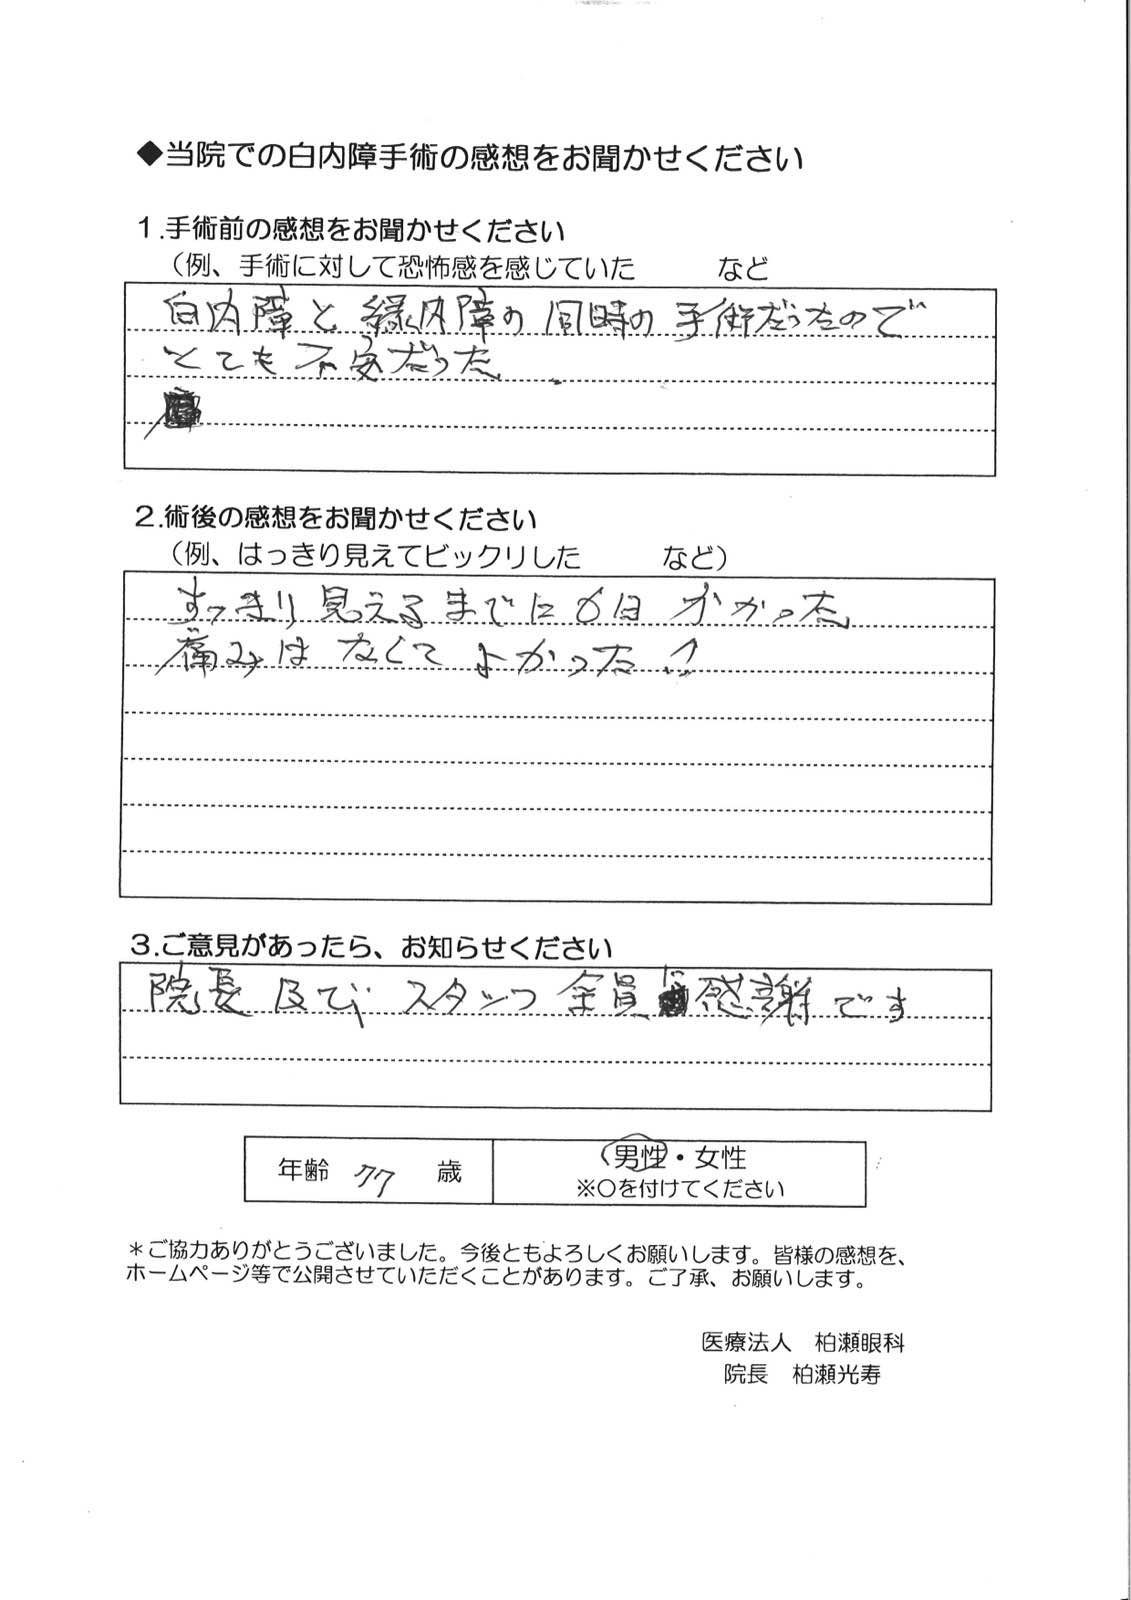 ◆当院での白内障手術の感想をお聞かせください
1.手術前の感想をお聞かせください
（例、手術に対して恐怖感を感じていた　　　など
白内障と緑内障の同時の手術だったので
とても不安だった
2.術後の感想をお聞かせください
（例、はっきり見えてビックリした　　　など）
すっきり見えるまでに6日かかった
痛みはなくてよかった！
3.ご意見があったら、お知らせください
院長及びスタッフ全員に感謝です
年齢 77 歳
男性・女性
※〇を付けてください
＊ご協力ありがとうございました。今後ともよろしくお願いします。皆様の感想を、
ホームページ等で公開させていただくことがあります。ご了承、お願いします。
医療法人　柏瀬眼科
院長　柏瀬光寿